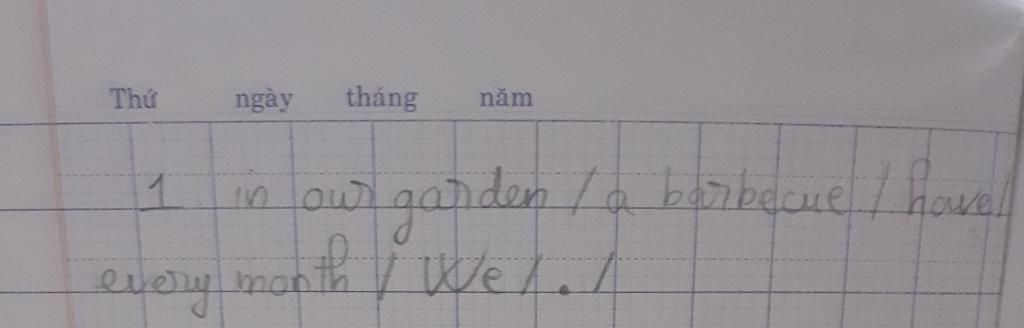 Thứ ngày tháng năm
1 in our garden / a barbecue / have /
every month / We / . /